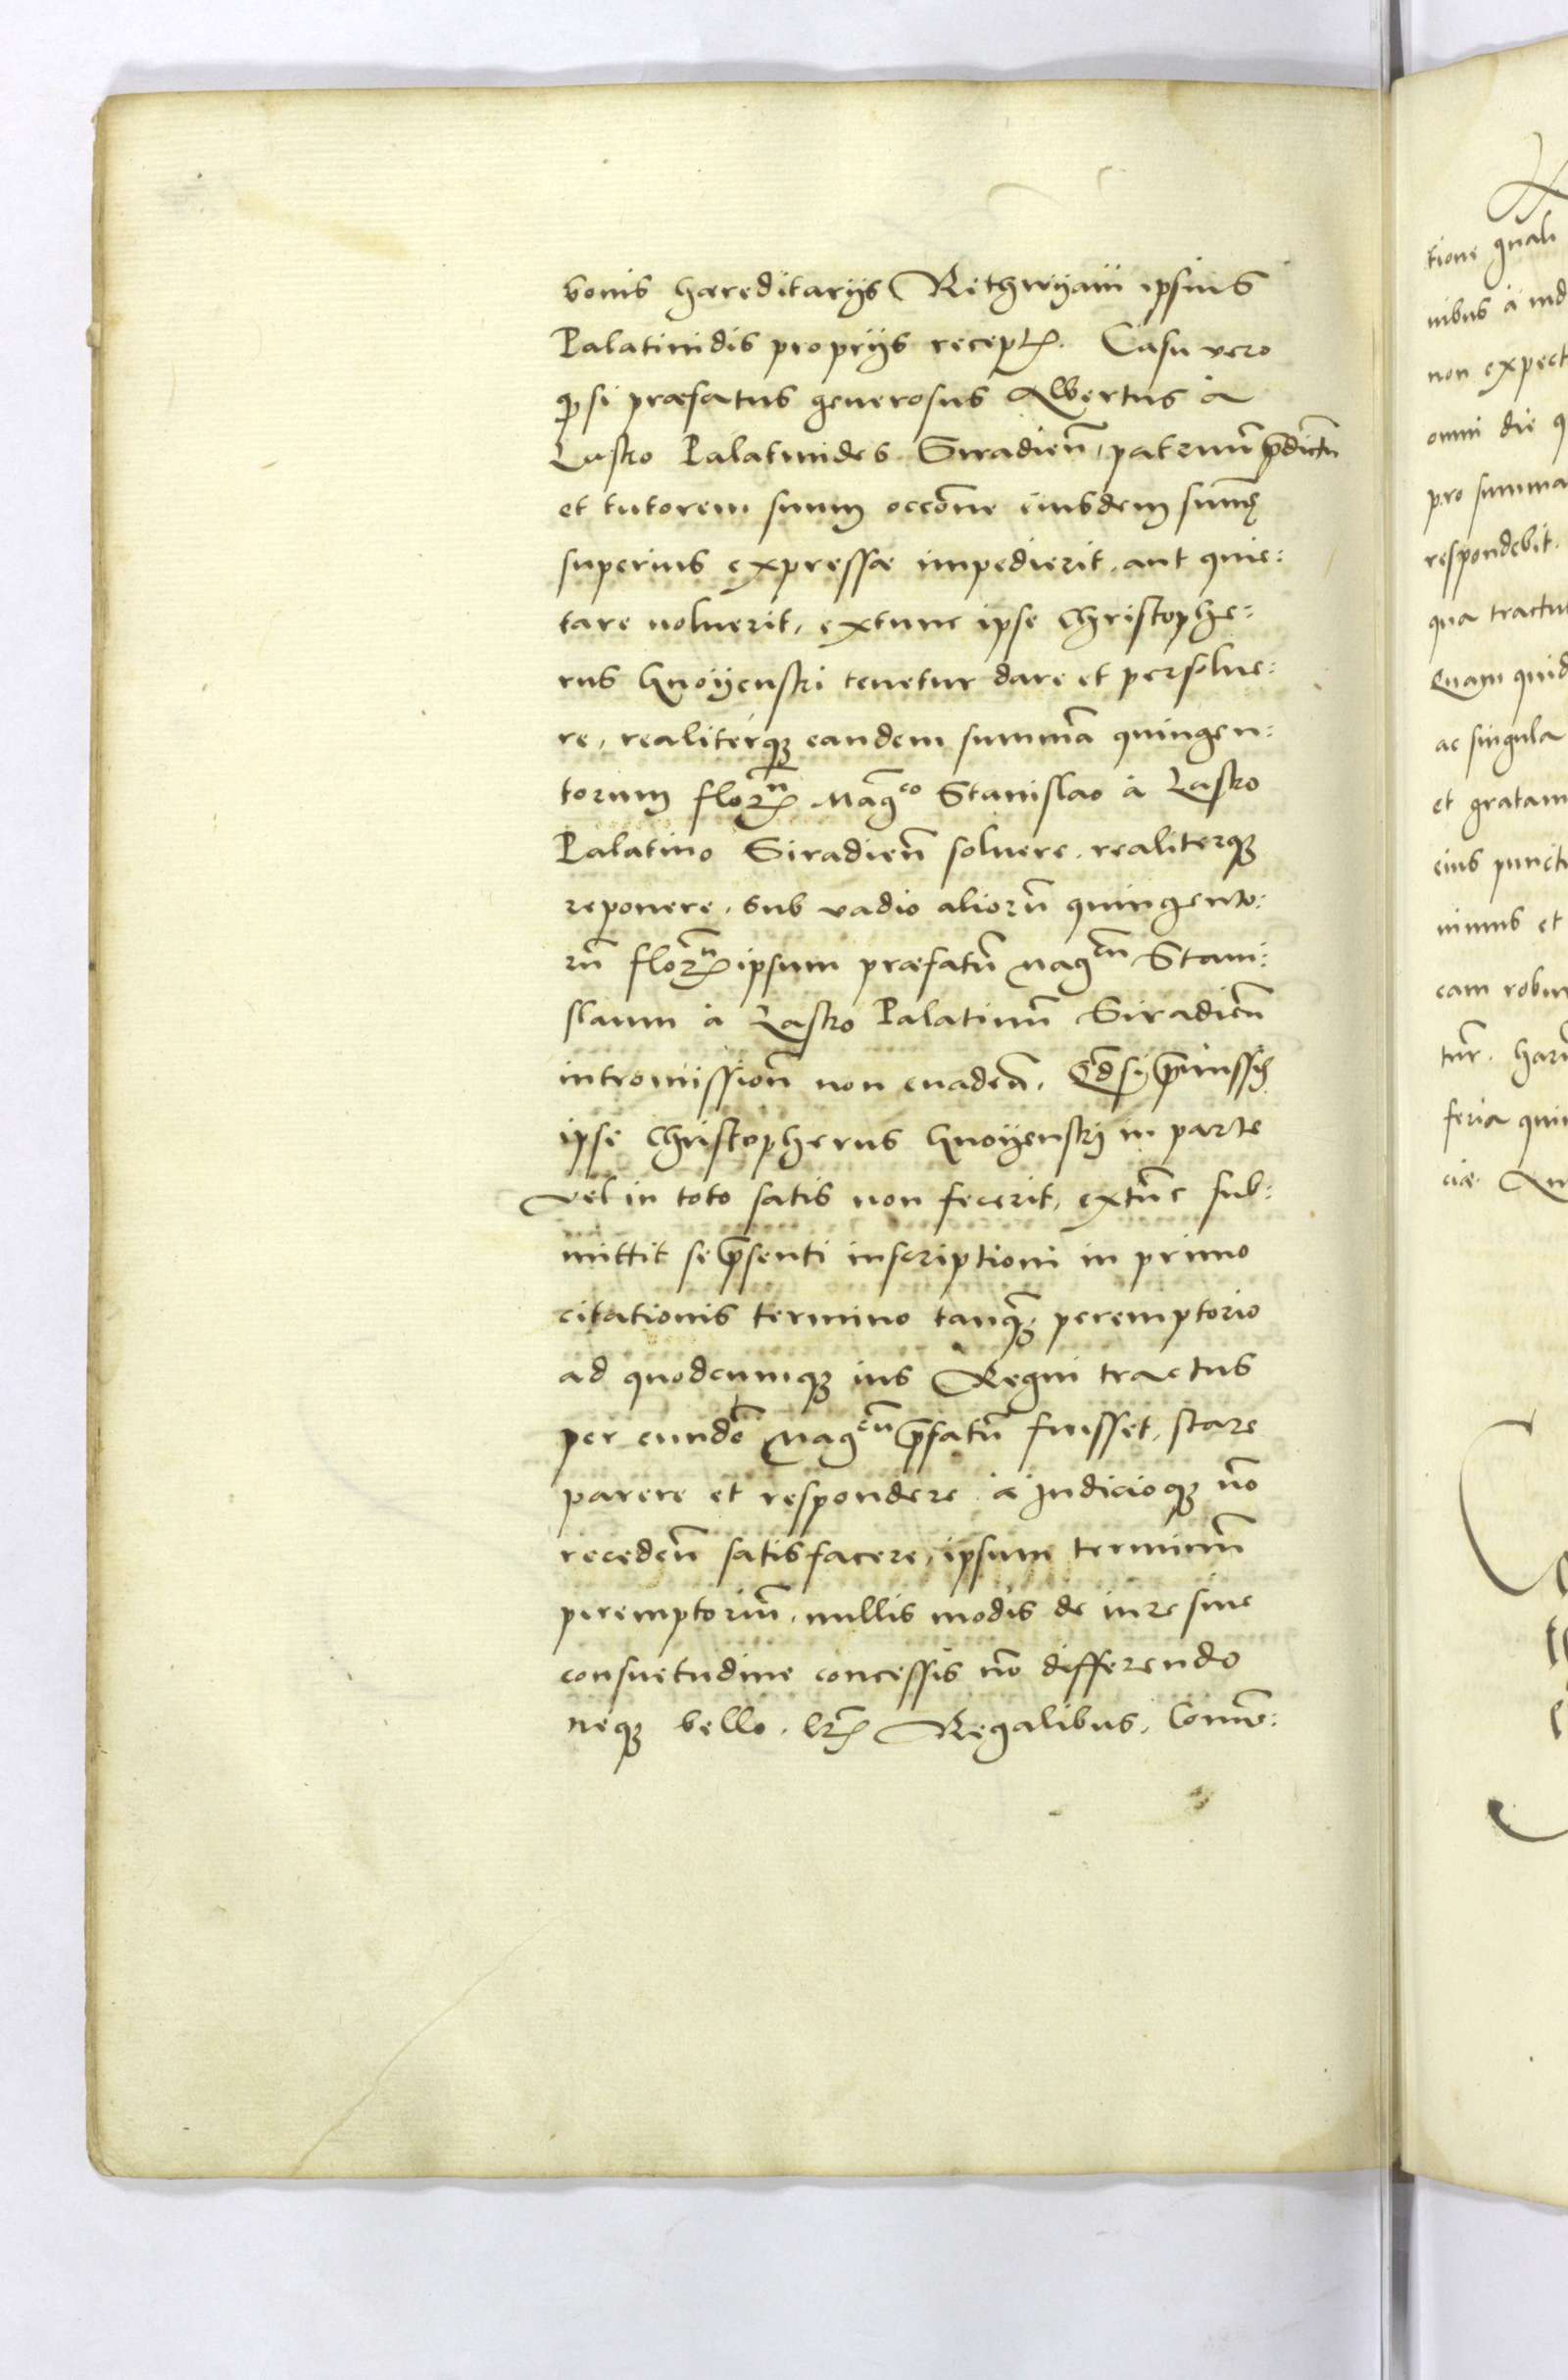 bonis hæreditarijs Rithwijani ipsius
Palatinidis proprijs recept. Casu vero
qp si præfatus generosus Albertus à
Lasko Palatinides Siradien̄, patruū p̄dictū
et tutorem suum occōne eiusdem sum̄ę
superius expressæ impedierit, aut quie:
tare noluerit, extunc ipse Christophe:
rus Gnoyenski tenetur dare et persolue:
re, realiterq; eandem summā quingen:
torum florn̄ Mag^co Stanislao à Lasko
Palatino Siradien̄ soluere, realiterq;
reponere, sub vadio aliorū quingento:
rū florn̄ ipsum præfatū Mag^cū Stani:
slaum à Lasko Palatinū Siradien̄
intromission̄ non euadeñ. Qd̄ si p̄missis
ipse Christopherus Gnoyenskj in parte
vel in toto satis non fecerit, extūc sub:
mittit se p̄senti inscriptioni in primo
citationis termino tanq̄; peremptorio
ad quodcumq; ius Regni tractus
per eundē Mag^cū p̄fatū fuisset, stare
parere et respondere à Judicioq; nō
receden̄ satisfacere, ipsum terminū
peremptoriū, nullis modis de iure siue
consuetudine concessis nō differendo
neq; bello, lr̄is Regalibus, Comō:
tione gnali
nibus à iud
non expect
omni die q
pro summa
respondebit.
qua tractu
Quam quid
ac singula
et gratam
eius puncti
nimus et
eam robur
tur. harū
feria quin
ciæ An